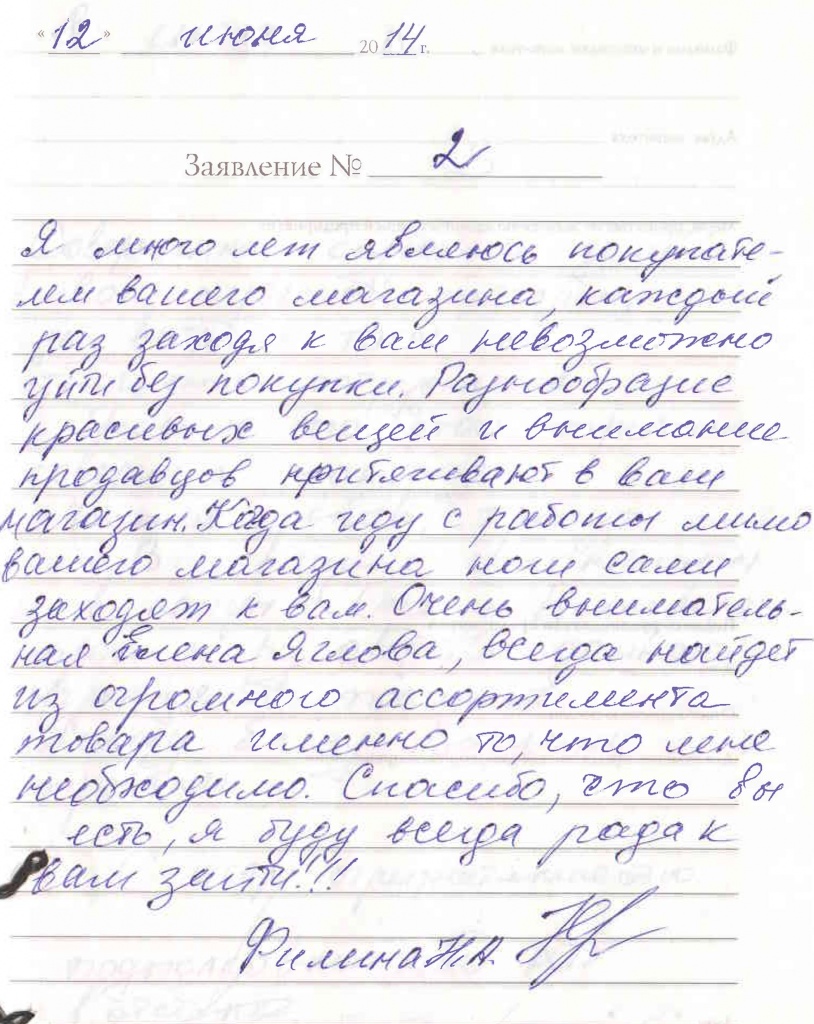 «12» июня 2014 г.
Заявление № 2
Я много лет являюсь покупате-
лем вашего магазина, каждый
раз заходя к вам невозможно
уйти без покупки. Разнообразие
красивых вещей и внимание
продавцов притягивают в ваш
магазин. Когда иду с работы мимо
вашего магазина ноги сами
заходят к вам. Очень вниматель-
ная Елена Яглова, всегда найдет
из огромного ассортимента
товара именно то, что мне
необходимо. Спасибо, что вы
есть, я буду всегда рада к
вам зайти!!!
Филина Н.А.